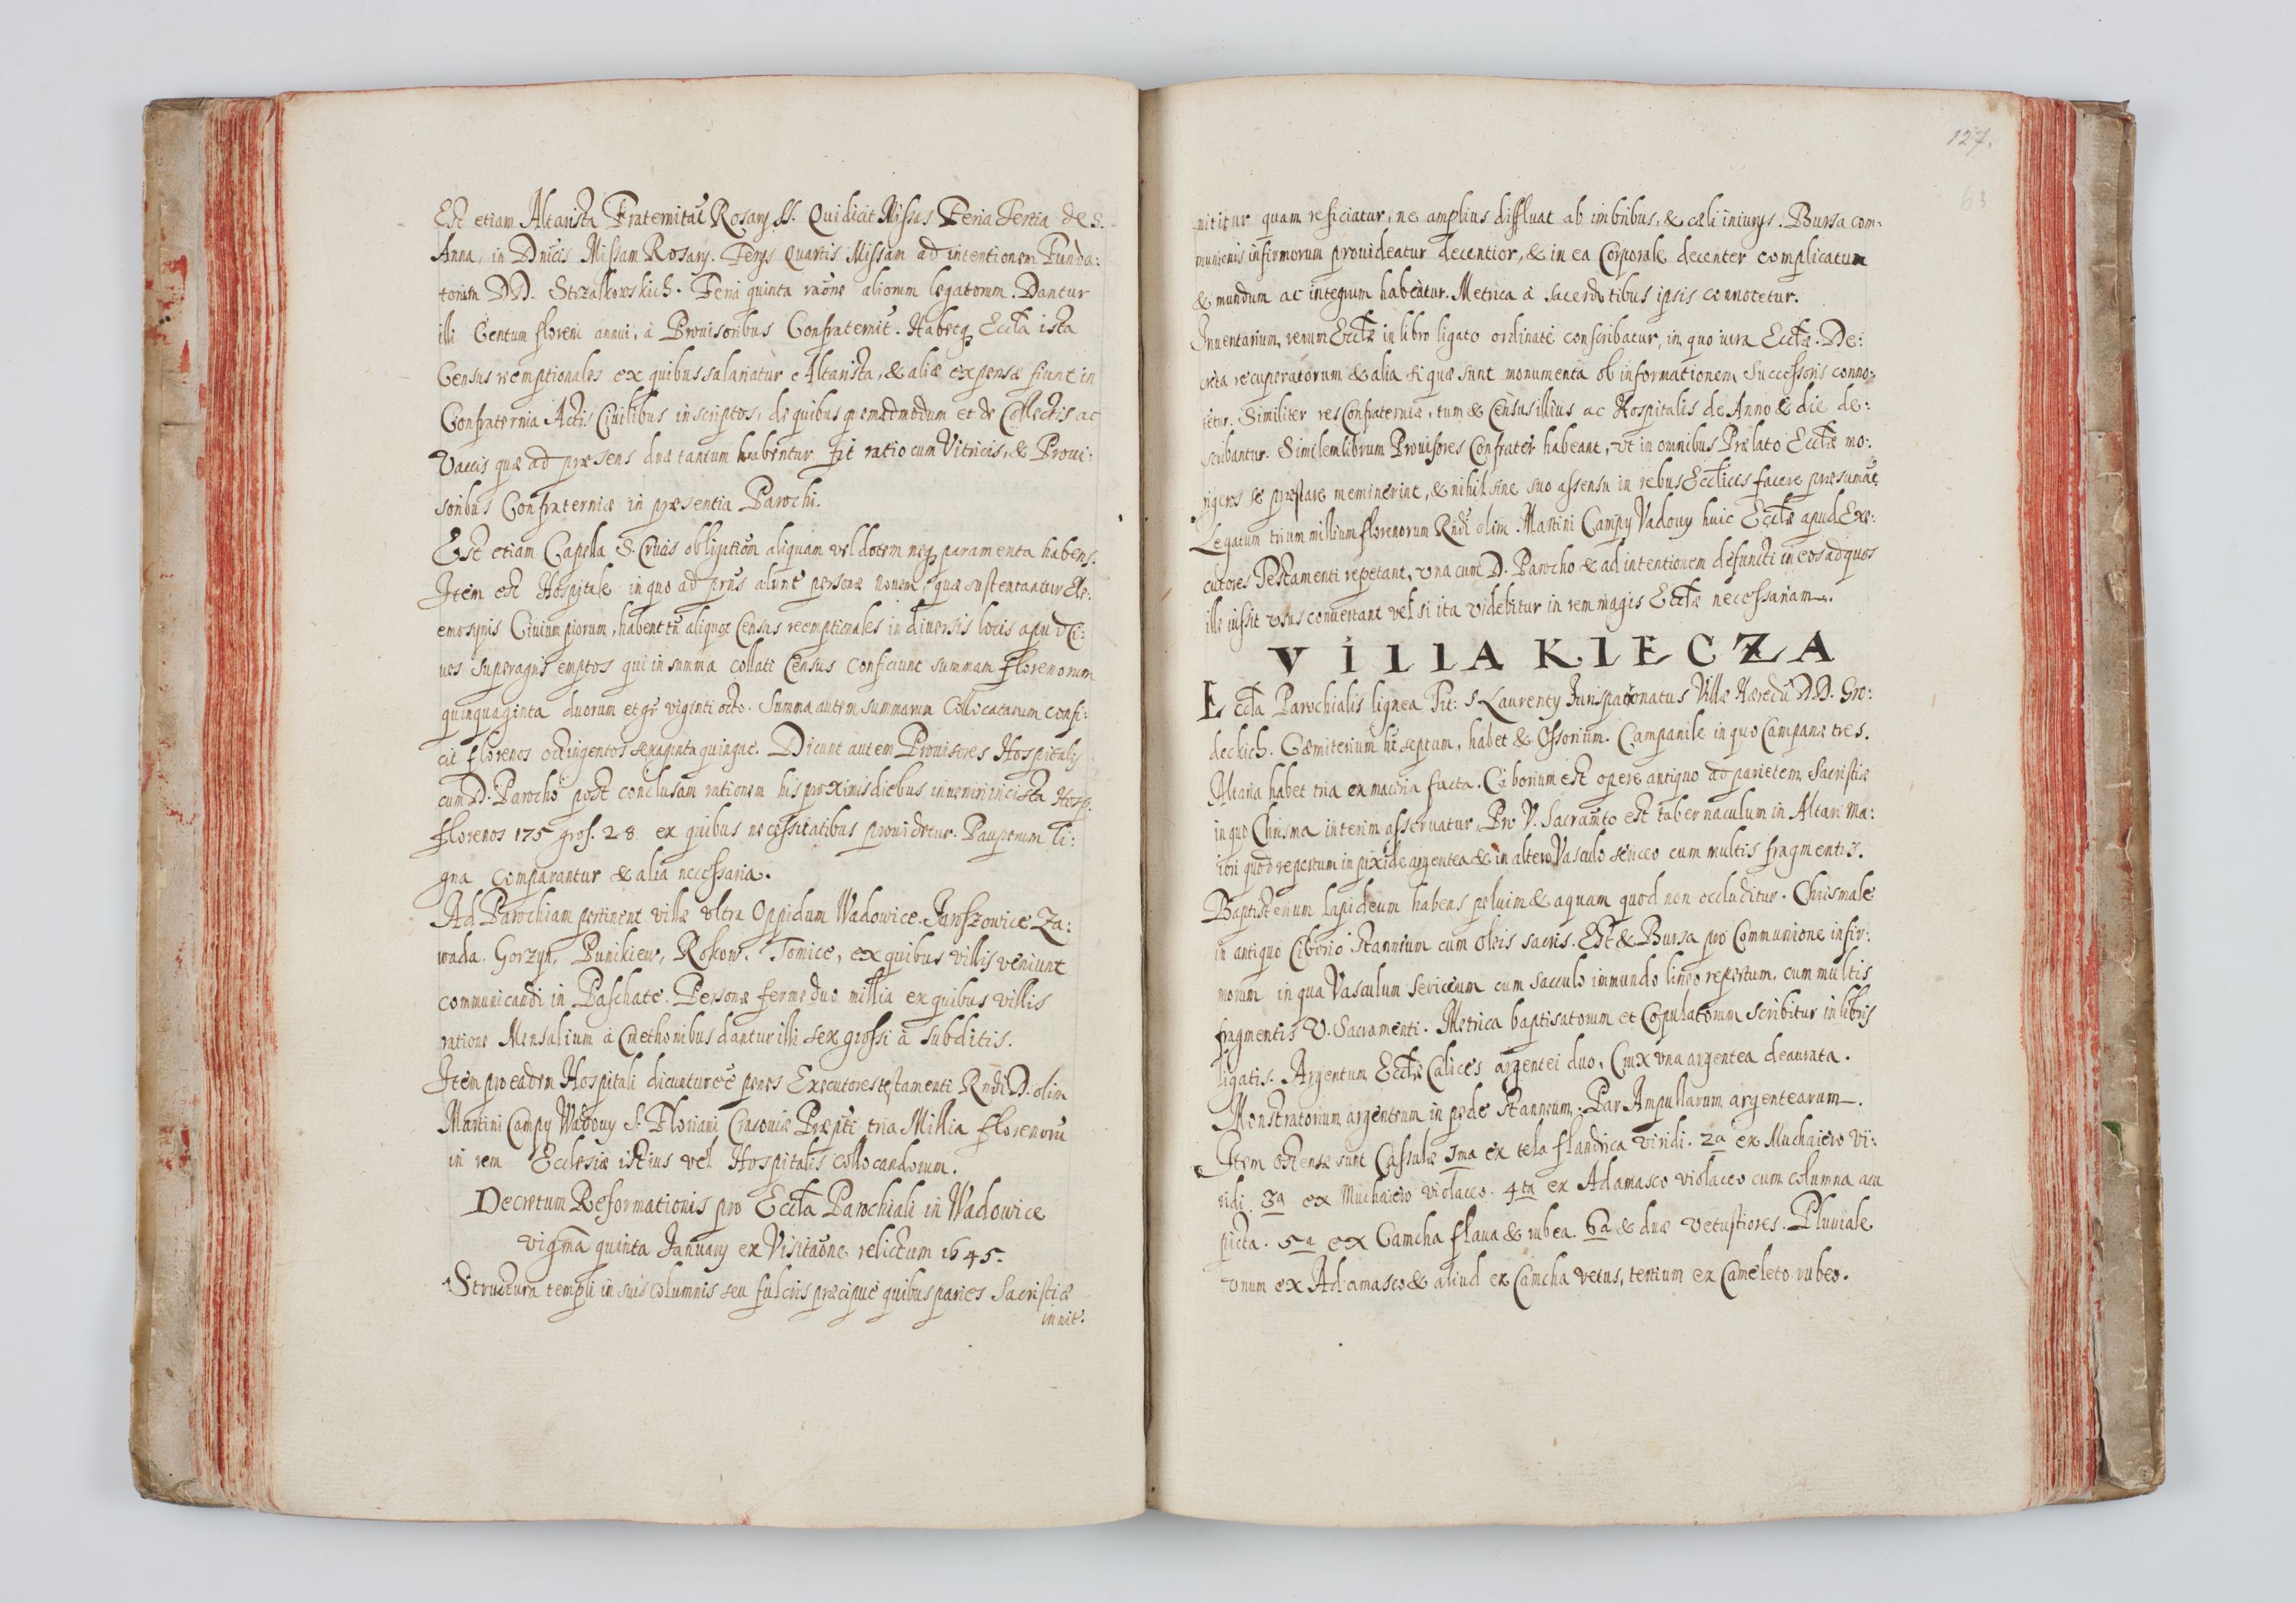 Est etiam Altarista Fraternitāt Rosary SS. Qui dicit Missas Feria Tertia de S.
Anna, in Dnīcis Missam Rosary. Ferys Quartis Missam ad intentionem Funda:
torum DD. Strzałkowskich. Feria quinta rāone aliorum legatorum. Dantur
illi Centum floreni annui, à Prouisoribus Confraternit. Habetq Eccła ista
Census reemptionales ex quibus salariatur Altarista, & aliæ expensæ fiunt in
Confraternia Actis Ciuilibus inscriptos, de quibus quemadmodum et de Collectis ac
Vaccis quæ ad præsens duæ tantum habentur fit ratio cum Vitricis, & Proui:
soribus Confraterniæ in præsentia Parochi.
Est etiam Capella S. Crucis obligatiōm aliquam vel dotem neq paramenta habens.
Item est Hospitale in quo ad prns alunt personæ nouem, quæ sustentantur Ele:
emosynis Ciuium piorum, habent tn aliquot Census reemptionales in diuersis locis apud Ci:
ues super agris emptos qui in summa collati Census conficiunt summam florenorum
quinquaginta duorum et gr viginti octo. Summa autem summarum Collocatarum confi:
cit florenos octingentos sexaginta quinque. Dicunt autem Prouisores Hospitalis
cum D. Parocho post conclusam rationem his proximis diebus inueniri in cista Hosp.
florenos 175 gros. 28. ex quibus necessitatibus prouidetur. Pauperum li:
gna comparantur & alia necessaria.
Ad Parochiam pertinent villæ vltra Oppidum Wadowice. Jaroszowice Za:
wada. Gorzyń, Punikiew, Rokow. Tomice, ex quibus villis veniunt
communicandi in Paschate. Personæ ferme duo millia ex quibus villis
ratione Mensalium à Cmethonibus dantur illi sex grossi à subditis.
Item pro eadem Hospitali dicuntur eē penes Executores testamenti Rndi D. olim
Martini Campy Wadouy S. Floriani Cracouiæ Præpti tria Millia florenorū
in rem Ecclesiæ istius vel Hospitalis collocandorum.
Decretum Reformationis pro Eccła Parochiali in Wadowice
vigma quinta January ex Visitāone relictum 1645.
Structura templi in suis columnis seu fulcris præcipuè quibus paries Sacristiæ
innit.
127.
63
nititur quam reficiatur, ne amplius diffluat ab imbribus, & cæli iniurys. Bursa com:
munionis infirmorum prouideatur decentior, & in ea Corporale decenter complicatum
& mundum ac integrum habeatur. Metrica à sacerdotibus ipsis connotetur.
Inuentarium rerum Ecclæ in libro ligato ordinatè conscribatur, in quo iura Ecclæ. De:
creta recuperatorum & alia si quæ sunt monumenta ob informationem Successoris conno:
tetur. Similiter res Confraterniæ, tum & Census illius ac Hospitalis de Anno & die de:
scribantur. Similem librum Prouisores Confrater habeant, vt in omnibus Prælato Ecclæ mo:
rigeros se præstare meminerint, & nihil sine suo assensu in rebus Eccłicis facere præsumāt.
Legatum trium millium florenorum Rndi olim Martini Campy Vadouy huic Ecclæ apud Exe:
cutores Testamenti repetant, vna cum D. Parocho & ad intentionem defuncti in eos ad quos
ille iussit vsus conuertant vel si ita videbitur in rem magis Ecclæ necessariam.
VILLA KLECZA
Eccła Parochialis lignea Tit: S Laurenty Jurispatronatus Villæ Hæredū DD. Gro:
deckich. Cæmiterium ht septum, habet & Ossorium. Campanile in quo Campanæ tres.
Altaria habet tria ex materia facta. Ciborium est opere antiquo ad parietem Sacristiæ
in quo Chrisma interim asseruatur, Pro V. Sacramto est tabernaculum in Altari Ma:
iori quod repertum in pixide argentea & in altero Vasculo sericeo cum multis fragmentis.
Baptisterium lapideum habens peluim & aquam quod non occluditur. Chrismale
in antiquo Ciborio stanneum cum oleis sacris. Est & Bursa pro Communione infir:
morum in qua Vasculum sericeum cum sacculo immundo lineo repertum, cum multis
fragmentis V. Sacramenti. Metrica baptisatorum et Copulatorum scribitur in libris
ligatis. Argentum Ecclæ Calices argentei duo, Crux vna argentea deaurata.
Monstratorium argenteum in pede stanneum. Par Ampullarum argentearum.
Item ostensæ sunt Cassulæ 1ma ex tela flandrica viridi. 2a ex Muchaiero Vi:
ridi. 3a ex Muchaiero violaceo. 4ta ex Adamasco violaceo cum columna acu
picta. 5a ex Camcha flaua & rubea. 6a & duæ vetustiores. Pluuiale
vnum ex Adamasco & aliud ex Camcha vetus, tertium ex Cameleto rubeo.